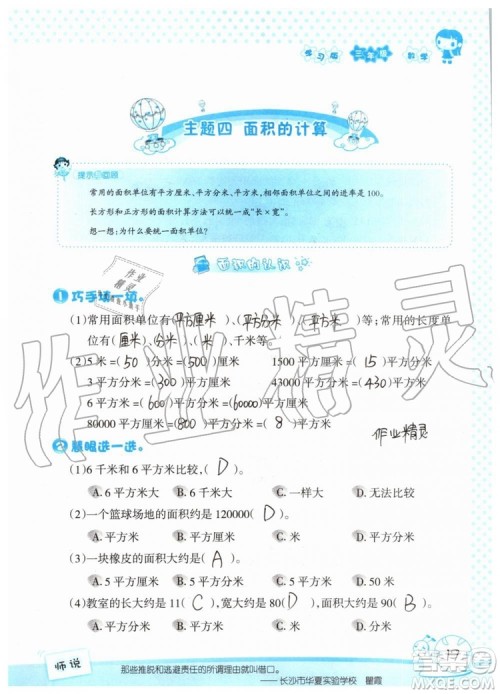 学习版 三年级 数学
主题四 面积的计算
常用的面积单位有平方厘米、平方分米、平方米,相邻面积单位之间的进率是100。
长方形和正方形的面积计算方法可以统一成“长×宽”。
想一想:为什么要统一面积单位?
面积的认识
1 巧手填一填。
(1)常用面积单位有(平方厘米)、(平方分米)、(平方米)等;常用的长度单
位有(厘米)、(分米)、(米)、千米等。
(2)5米=(50)分米=(500)厘米 1500平方厘米=(15)平方分米
3平方分米=(300)平方厘米 43000平方分米=(430)平方米
6平方米=(600)平方分米=(60000)平方厘米
80000平方厘米=(800)平方分米=(8)平方米
作业精灵
二 慧眼选一选。
(1)6千米和6平方米比较,(D)。
A.6平方米大 B.6千米大 C.一样大 D.无法比较
(2)一个篮球场地的面积约是120000(D)。
A.平方厘米 B.平方米 C.米 D.平方分米
(3)一块橡皮的面积大约是(A)。
A.5平方厘米 B.5平方米 C.5平方分米 D.50米
(4)教室的长大约是11(C),宽大约是80(B),面积大约是90(A)。
A.平方米 B.分米 C.米 D.平方分米
师说
那些推脱和逃避责任的所谓理由就叫借口。
——长沙市华夏实验学校 瞿霞
19
作业精灵